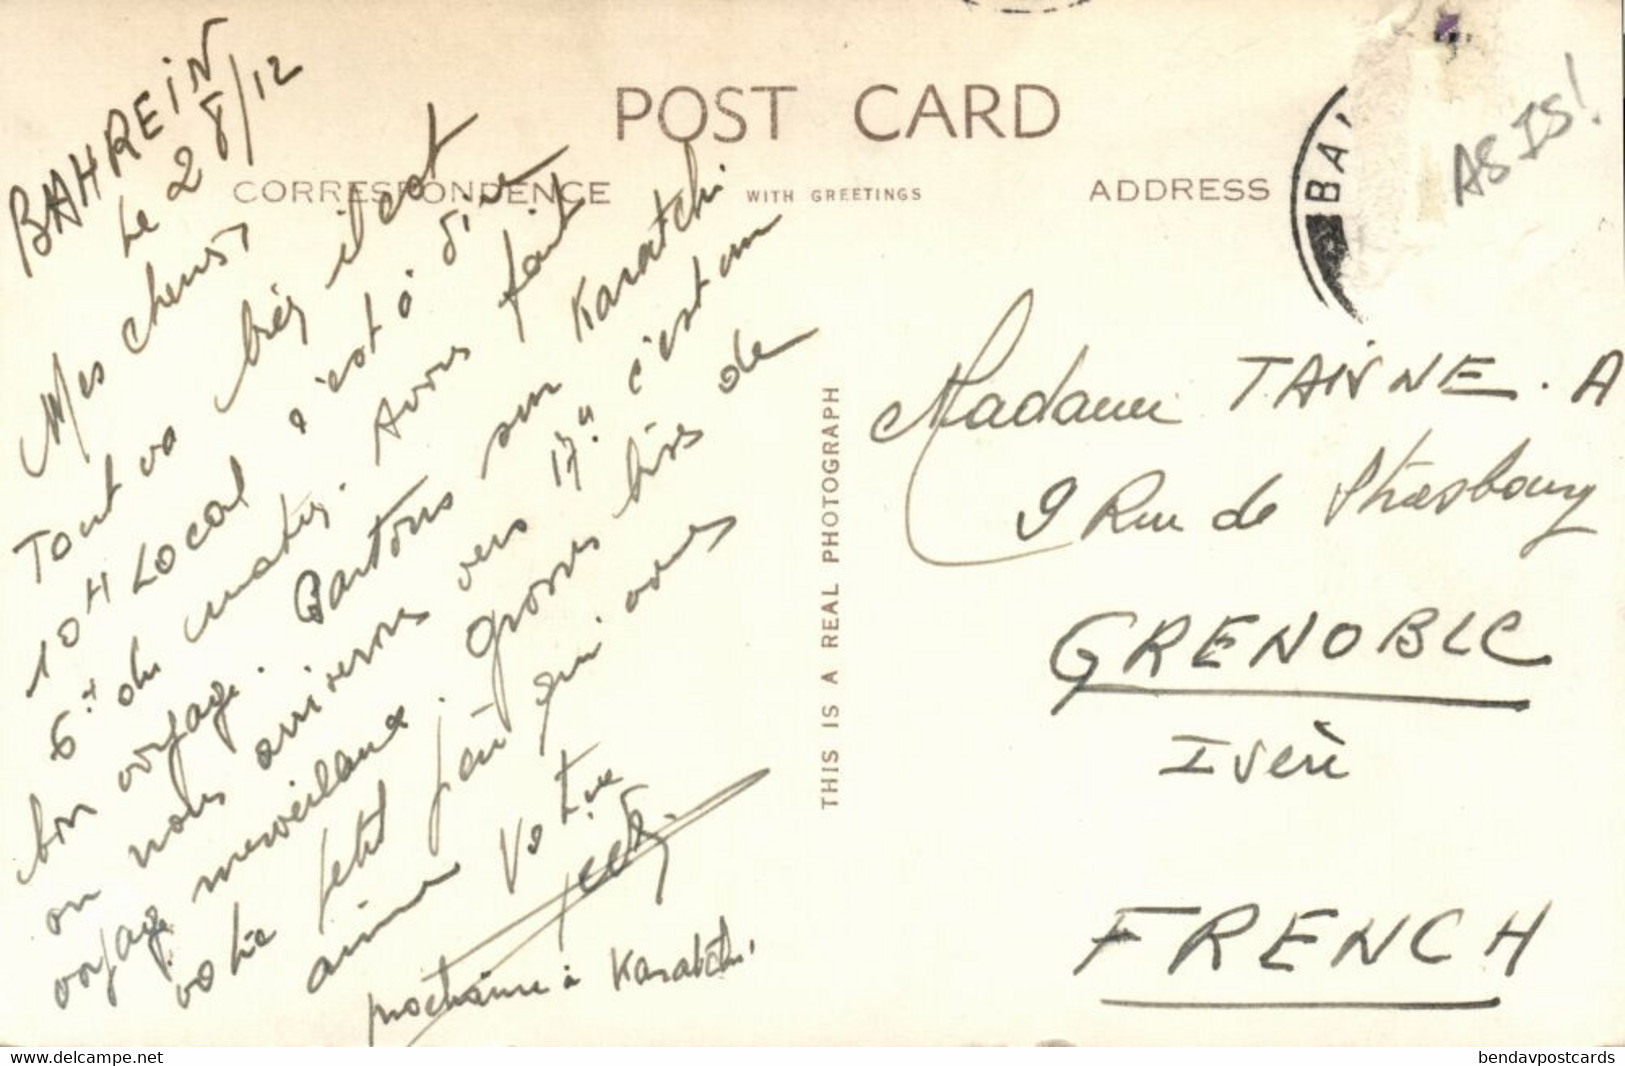 POST CARD
CORRESPONDENCE
WITH GREETINGS
ADDRESS
BA
AS IS!
BAHREIN
Le 28/12
Mes
Tout va bien il est
10H Local c'est à dire
6H du matin. Avons fait
bon voyage. Partons sur Karatchi
ou nous arriverons vers 17H c'est un
voyage merveilleux. grosses bises de
votre petit qui vous
aime Votre
prochaine à Karatchi
THIS IS A REAL PHOTOGRAPH
Madame TAINNE. A
9 Rue de Strasbourg
GRENOBLE
Isère
FRENCH
www.delcampe.net
bendavpostcards